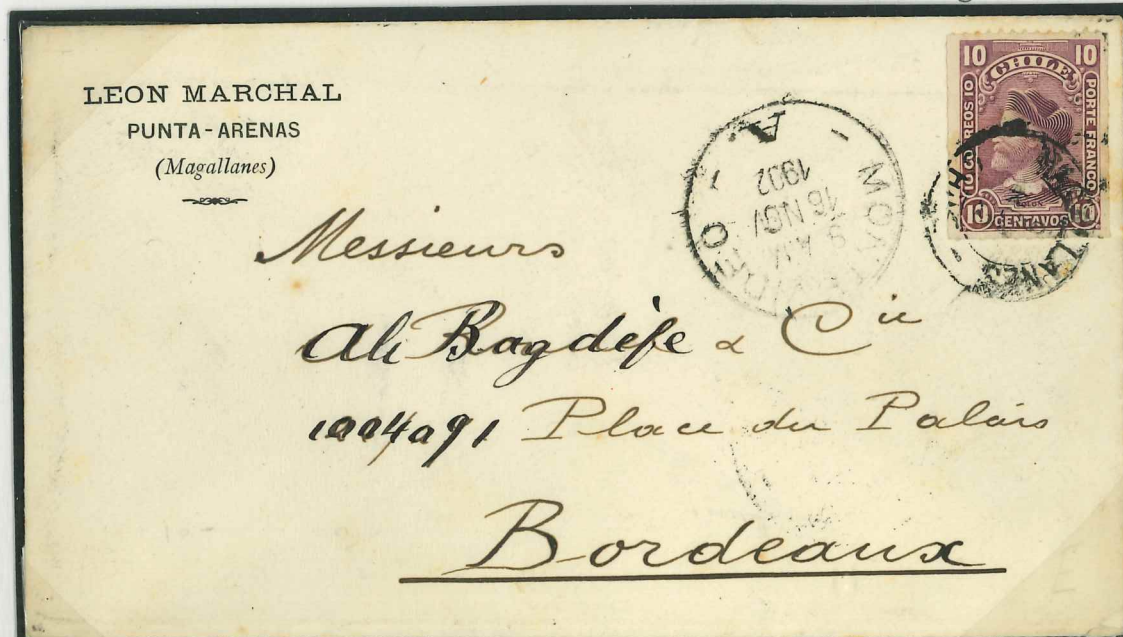 LEON MARCHAL
PUNTA-ARENAS
(Magallanes)
10 10
CHILE
CORREOS 10
PORTE FRANCO
COLON
10 CENTAVOS 10
MONTEVIDEO
A
9 AM
16 NOV
1902
MAGALLANES
Messieurs
Ali Bagdèfe & Cie
Place du Palais
Bordeaux